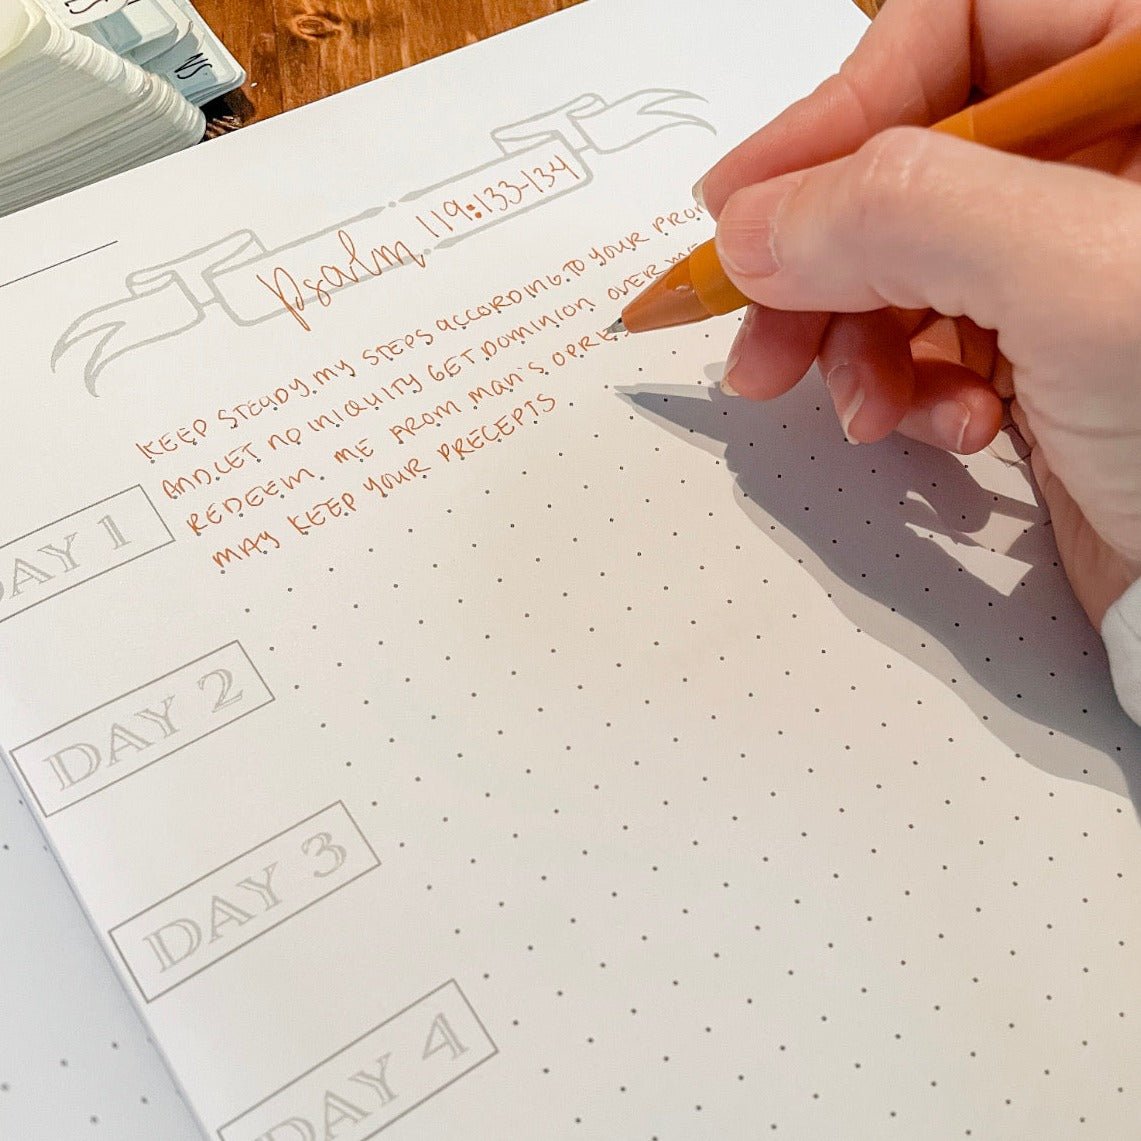 NS
Psalm 119:133-134
KEEP STEADY MY STEPS ACCORDING TO YOUR PRO
AND LET NO INIQUITY GET DOMINION OVER ME
REDEEM ME FROM MAN'S OPRE
MAY KEEP YOUR PRECEPTS
DAY 1
DAY 2
DAY 3
DAY 4